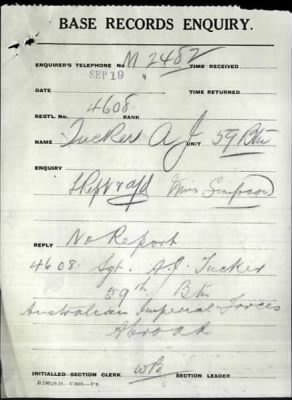 BASE RECORDS ENQUIRY.
ENQUIRER'S TELEPHONE No M 2482 TIME RECEIVED
SEP 19
DATE TIME RETURNED
REGTL. No. 4608 RANK
NAME Tucker A J UNIT 59 Btn
ENQUIRY
Miss Simpson
REPLY No Report
4608. Sgt. A J. Tucker
59th Btn
Australian Imperial Forces
Abroad
INITIALLED SECTION CLERK SECTION LEADER